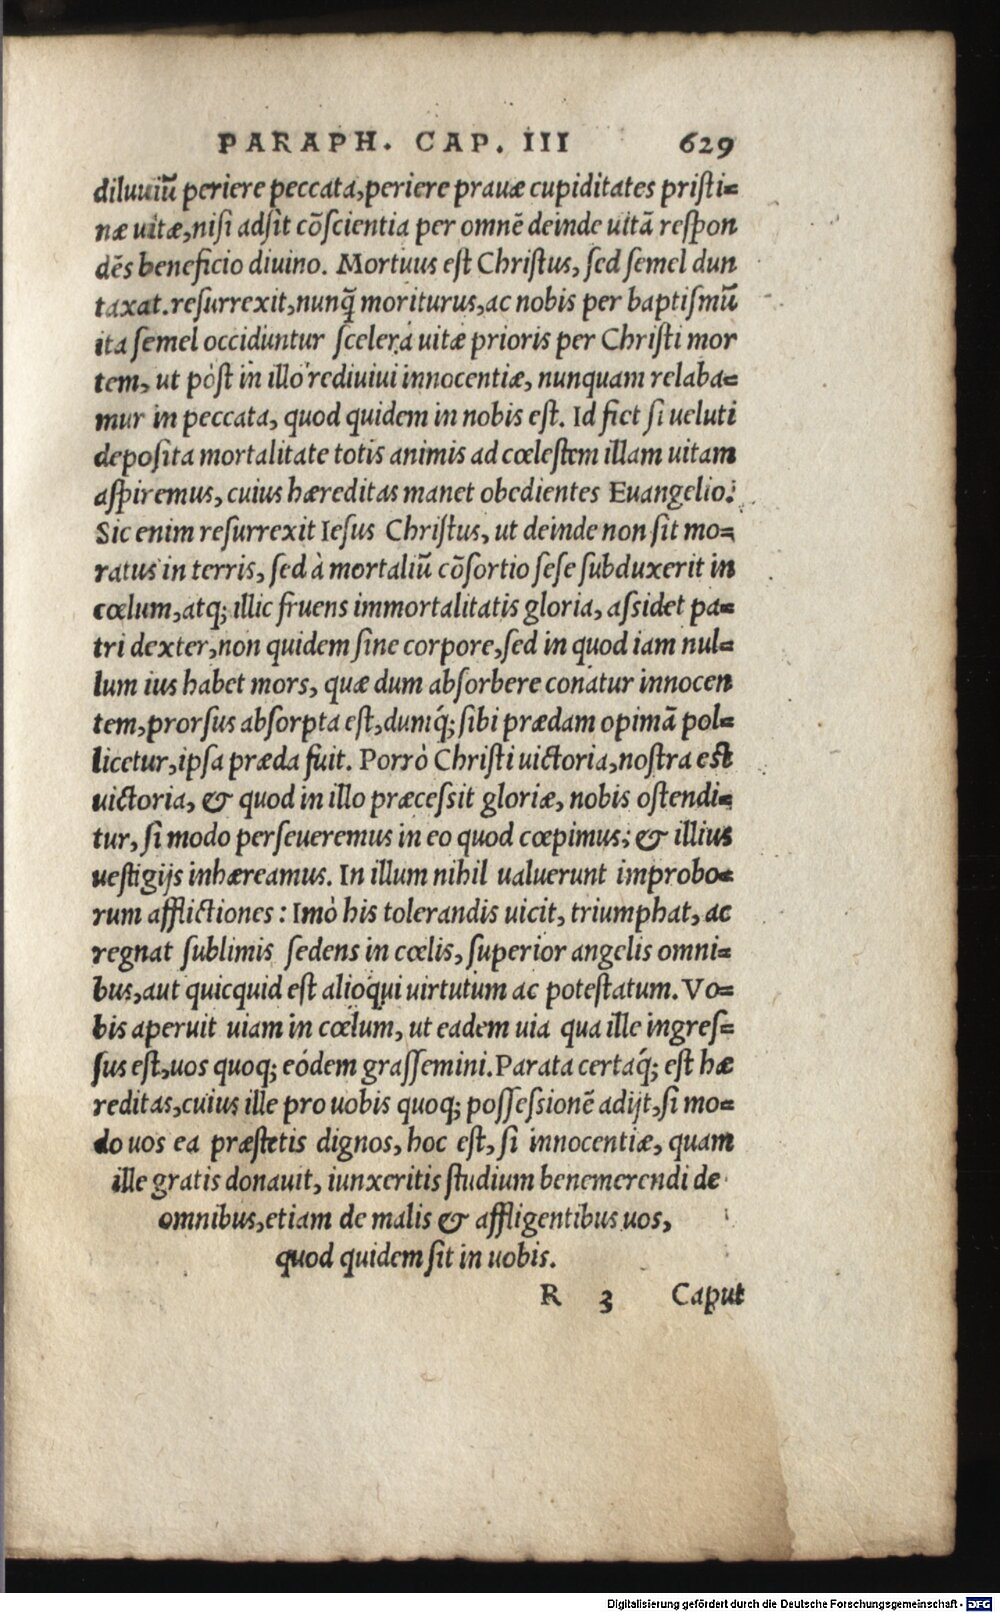 PARAPH. CAP. III 629
diluuiū periere peccata, periere prauæ cupiditates pristi=
næ uitæ, nisi adsit cōscientia per omnē deinde uitā respon
dēs beneficio diuino. Mortuus est Christus, sed semel dun
taxat. resurrexit, nunq̄ moriturus, ac nobis per baptismū
ita semel occiduntur scelera uitæ prioris per Christi mor
tem, ut pòst in illo rediuiui innocentiæ, nunquam relaba=
mur in peccata, quod quidem in nobis est. Id fiet si ueluti
deposita mortalitate totis animis ad cœlestem illam uitam
aspiremus, cuius hæreditas manet obedientes Euangelio.
Sic enim resurrexit Iesus Christus, ut deinde non sit mo=
ratus in terris, sed à mortaliū cōsortio sese subduxerit in
cœlum, atq; illic fruens immortalitatis gloria, assidet pa=
tri dexter, non quidem sine corpore, sed in quod iam nul=
lum ius habet mors, quæ dum absorbere conatur innocen
tem, prorsus absorpta est, dumq́; sibi prædam opimā pol=
licetur, ipsa præda fuit. Porrò Christi uictoria, nostra est
uictoria, & quod in illo præcessit gloriæ, nobis ostendi=
tur, si modo perseueremus in eo quod cœpimus; & illius
uestigijs inhæreamus. In illum nihil ualuerunt improbo=
rum afflictiones: Imò his tolerandis uicit, triumphat, ac
regnat sublimis sedens in cœlis, superior angelis omni=
bus, aut quicquid est alioqui uirtutum ac potestatum. Vo=
bis aperuit uiam in cœlum, ut eadem uia qua ille ingres=
sus est, uos quoq; eódem grassemini. Parata certaq́; est hæ
reditas, cuius ille pro uobis quoq; possessionē adijt, si mo=
do uos ea præstetis dignos, hoc est, si innocentiæ, quam
ille gratis donauit, iunxeritis studium benemerendi de
omnibus, etiam de malis & affligentibus uos,
quod quidem sit in uobis.
R 3 Caput
Digitalisierung gefördert durch die Deutsche Forschungsgemeinschaft - DFG